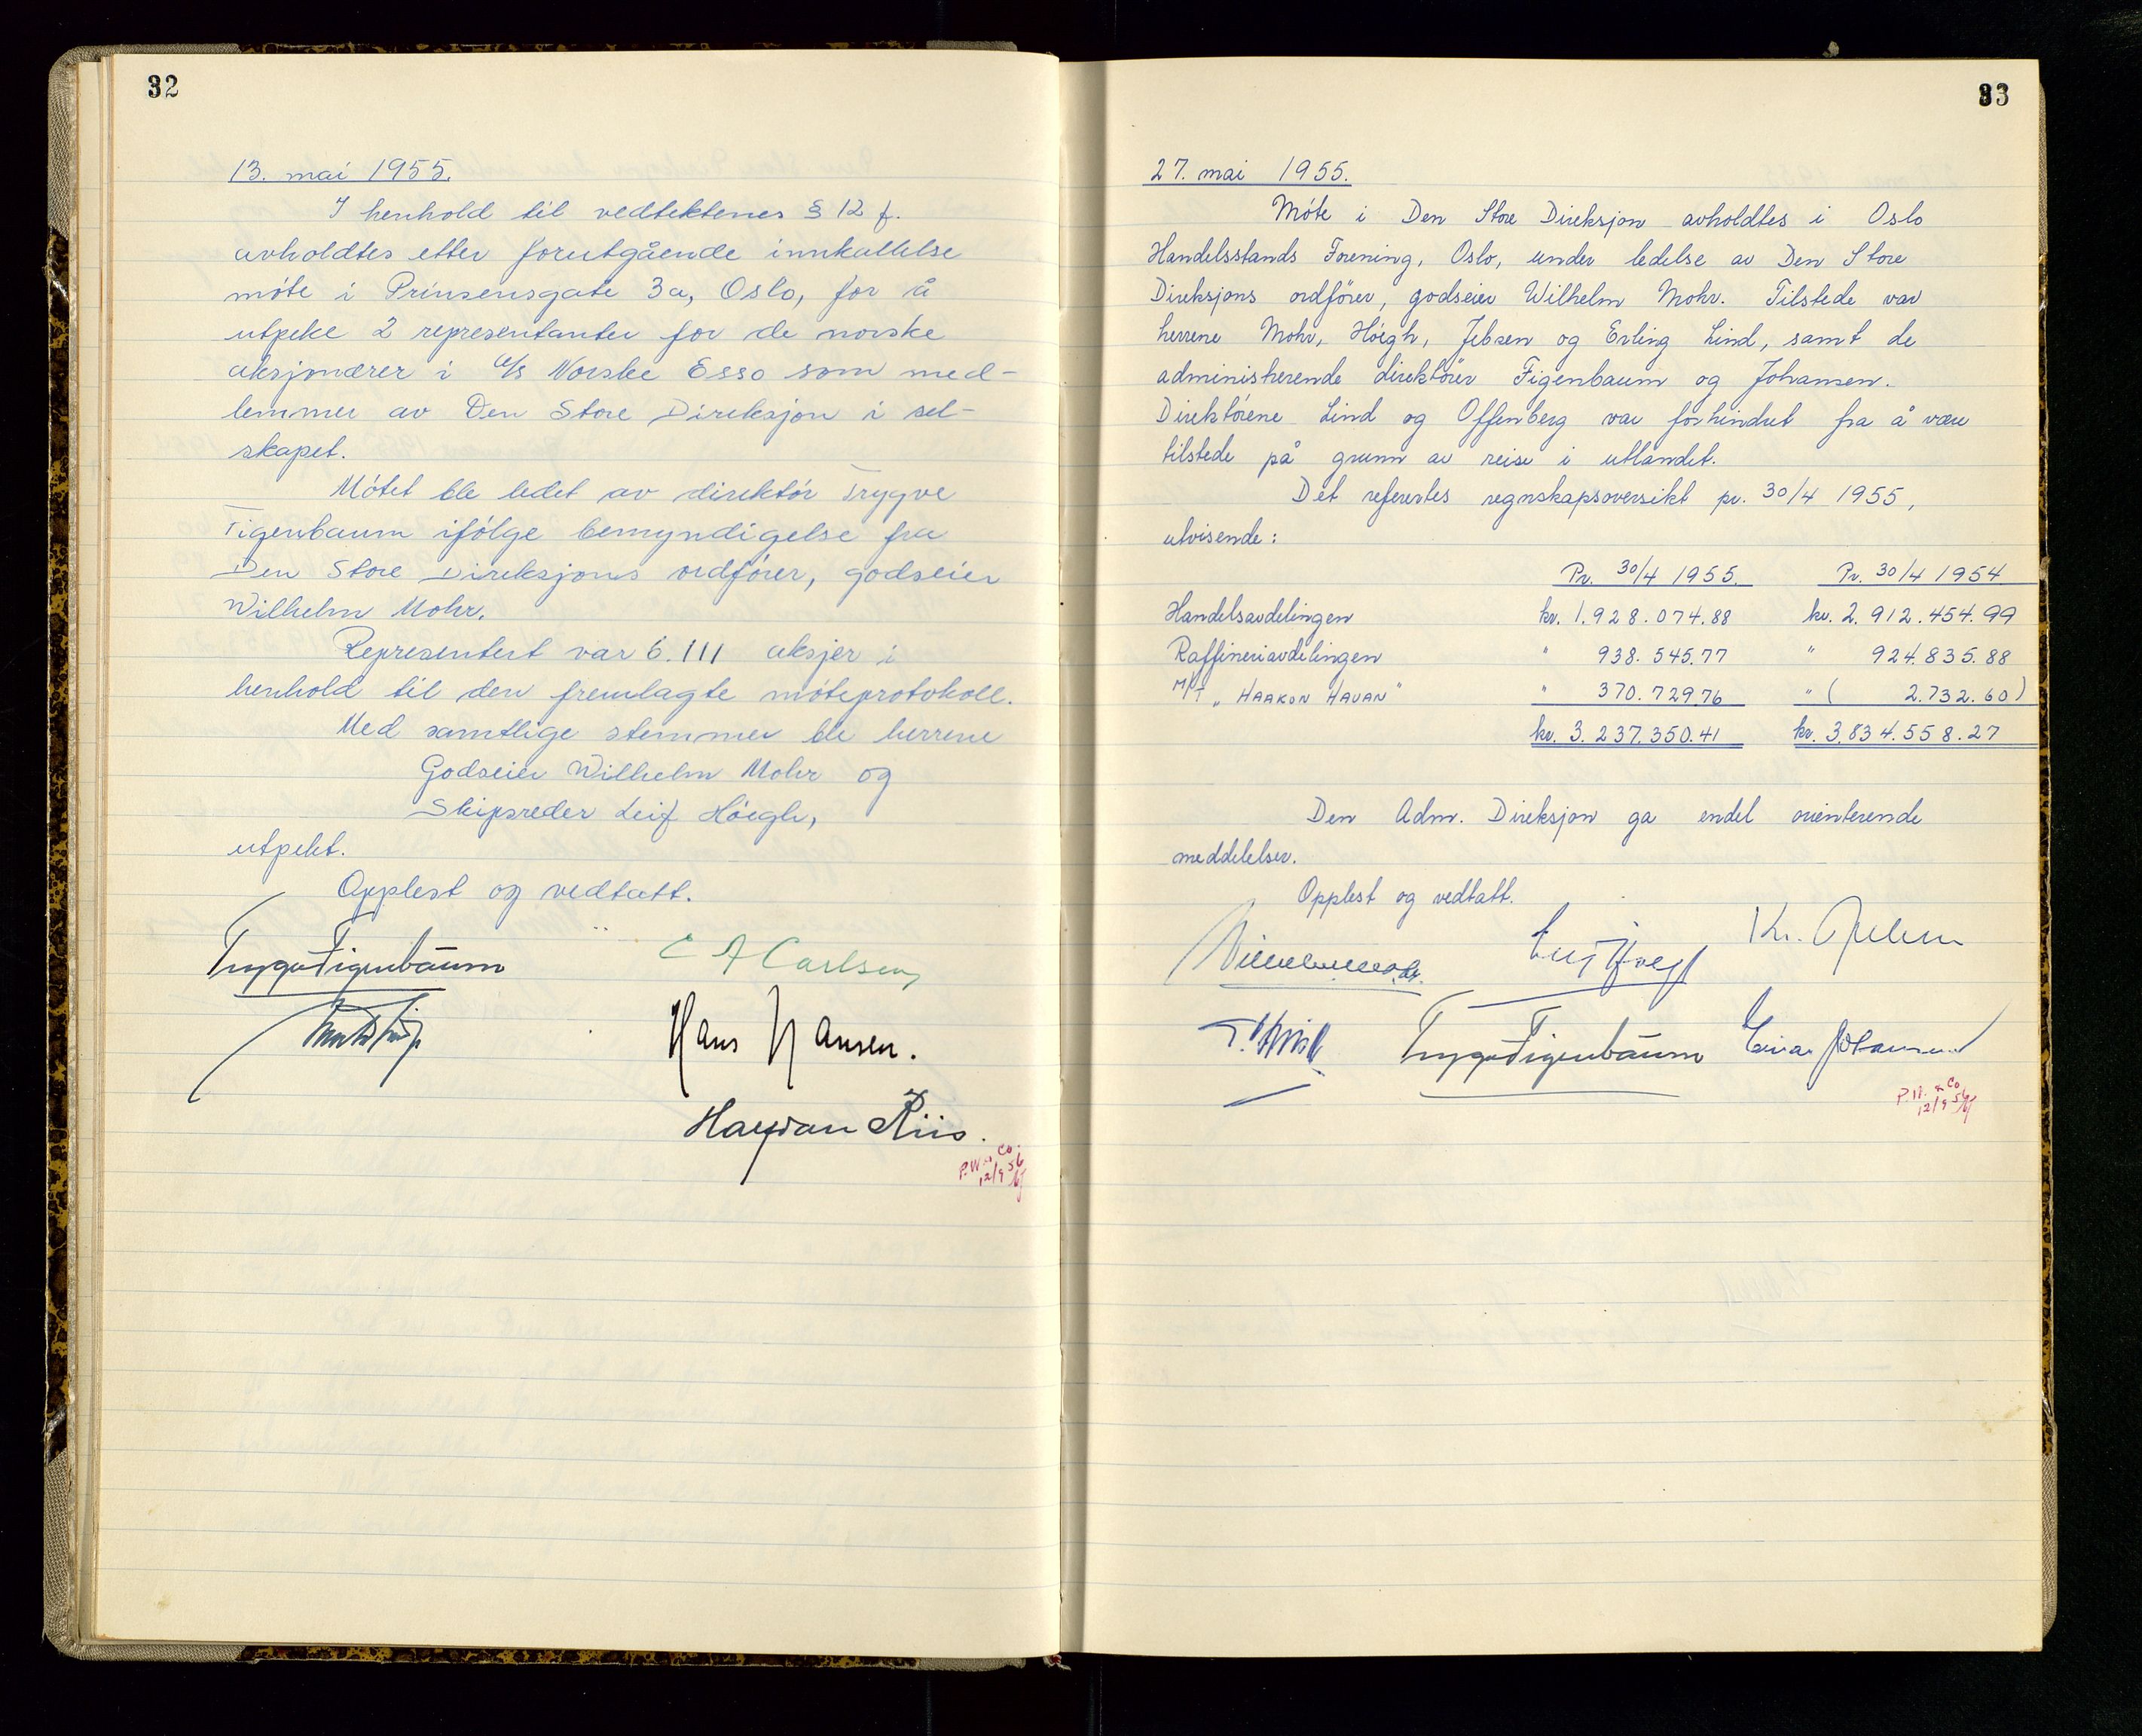 32
13. mai 1955.
I henhold til vedtektenes § 12 f.
avholdtes etter forutgående innkallelse
möte i Prinsensgate 3a, Oslo, for å
utpeke 2 representanter for de norske
aksjonærer i A/S Norske Esso som med-
lemmer av Den Store Direksjon i sel-
skapet.
Mötet ble ledet av direktör Trygve
Figenbaum ifölge bemyndigelse fra
Den Store Direksjons ordförer, godseier
Wilhelm Mohr.
Representert var 6.111 aksjer i
henhold til den fremlagte möteprotokoll.
Med samtlige stemmer ble herrene
Godseier Wilhelm Mohr og
Skipsreder Leif Höegh,
utpekt.
Opplest og vedtatt.
Trygve Figenbaum
C A Carlsen
Hans Hansen.
Halfdan Riis.
P.W. & Co.
12/9 56
33
27. mai 1955.
Möte i Den Store Direksjon avholdtes i Oslo
Handelsstands Forening, Oslo, under ledelse av Den Store
Direksjons ordförer, godseier Wilhelm Mohr. Tilstede var
herrene Mohr, Höegh, Jebsen og Erling Lind, samt de
administrerende direktörer Figenbaum og Johansen.
Direktörene Lind og Offenberg var forhindret fra å være
tilstede på grunn av reise i utlandet.
Det referertes regnskapsoversikt pr. 30/4 1955,
utvisende:
Pr. 30/4 1955. Pr. 30/4 1954
Handelsavdelingen kr. 1.928.074.88 kr. 2.912.454.99
Raffineriavdelingen " 938.545.77 " 924.835.88
M/T „HAAKON HAUAN" " 370.729.76 " ( 2.732.60)
kr. 3.237.350.41 kr. 3.834.558.27
Den Adm. Direksjon ga endel orienterende
meddelelser.
Opplest og vedtatt.
Wilhelm Mohr. Leif Höegh Kr. Jebsen
Trygve Figenbaum Einar Johansen
P.W. & Co
12/9 56